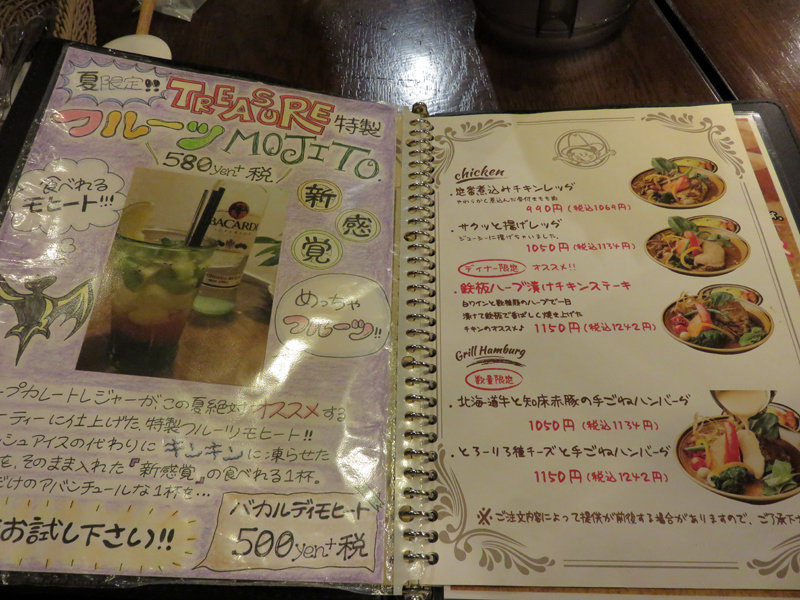 夏限定!!
TREASURE 特製
フルーツ MOJITO.
580yen+税
食べれる
モヒート!!!
新
感
覚
BACARDI
めっちゃ
フルーツ!!
プカレートレジャーがこの夏絶対オススメする
ーティーに仕上げた特製フルーツモヒート!!
ッシュアイスの代わりにギンギンに凍らせた
を、そのまま入れた『新感覚』の食べれる1杯。
だけのアバンチュールな1杯を...
お試し下さい!!
バカルディモヒート
500yen+税
chicken
・地番煮込みチキンレッグ
やわらかく煮込んだ骨付きもも肉
990円(税込1069円)
・サクッと揚げレッグ
ジューシーに揚げちゃいました。
1050円(税込1134円)
ディナー限定 オススメ!!
・鉄板ハーブ漬けチキンステーキ
白ワインと数種類のハーブで一日
漬けて鉄板で香ばしく焼き上げた
チキンのオススメ♪ 1150円(税込1242円)
Grill Hamburg
数量限定
・北海道牛と知床赤豚の手ごねハンバーグ
1050円(税込1134円)
・とろーり3種チーズと手ごねハンバーグ
1150円(税込1242円)
※ご注文内容によって提供が前後する場合がありますので、ご了承下